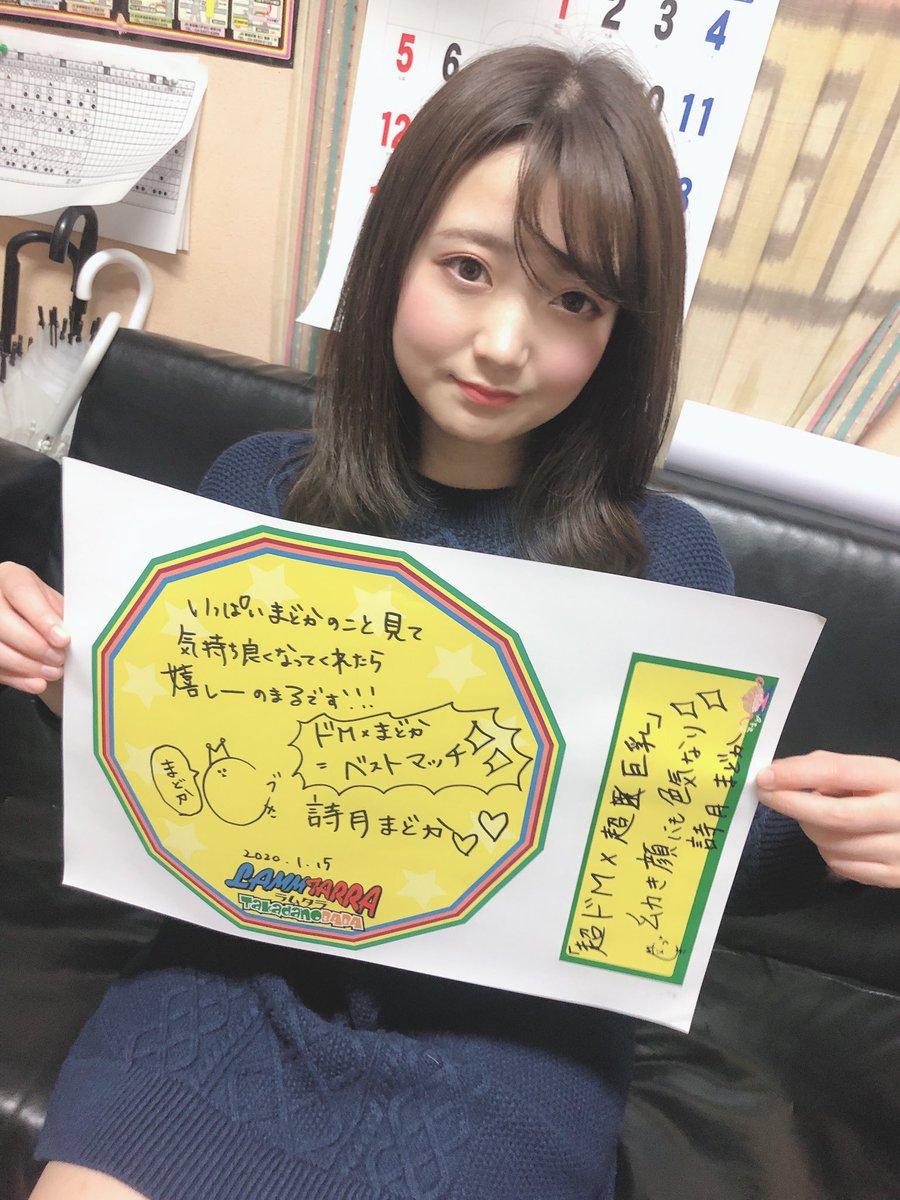 1
2
3
4
5
6
11
12
いっぱいまどかのこと見て
気持ち良くなってくれたら
嬉しーのまるです!!!
ドM×まどか
=ベストマッチ
まどか
詩月まどか
2020.1.15
LAMMTARRA
ラムタラ
TakadanoBABA
「超ドM×超巨乳」
幼き顔にも色気なり
詩月まどか